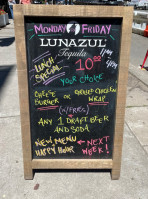 MONDAY FRIDAY
LUNAZUL
Tequila
LUNCH SPECIAL
10.00
11AM
4PM
YOUR CHOICE
CHEESE BURGER OR GRILLED CHICKEN WRAP
(W/FRIES)
ANY 1 DRAFT BEER
AND SODA
NEW MENU ← NEXT
HAPPY HOUR WEEK!